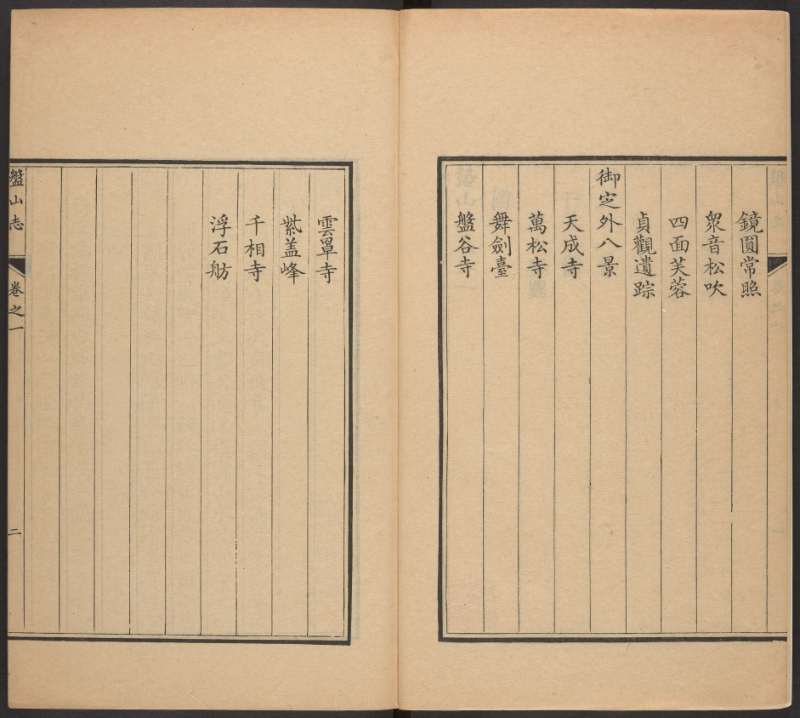 鏡圓常照
衆音松吹
四面芙蓉
貞觀遺踪
御定外八景
天成寺
萬松寺
舞劍臺
盤谷寺
雲罩寺
紫盖峰
千相寺
浮石舫
盤山志
卷之一
二